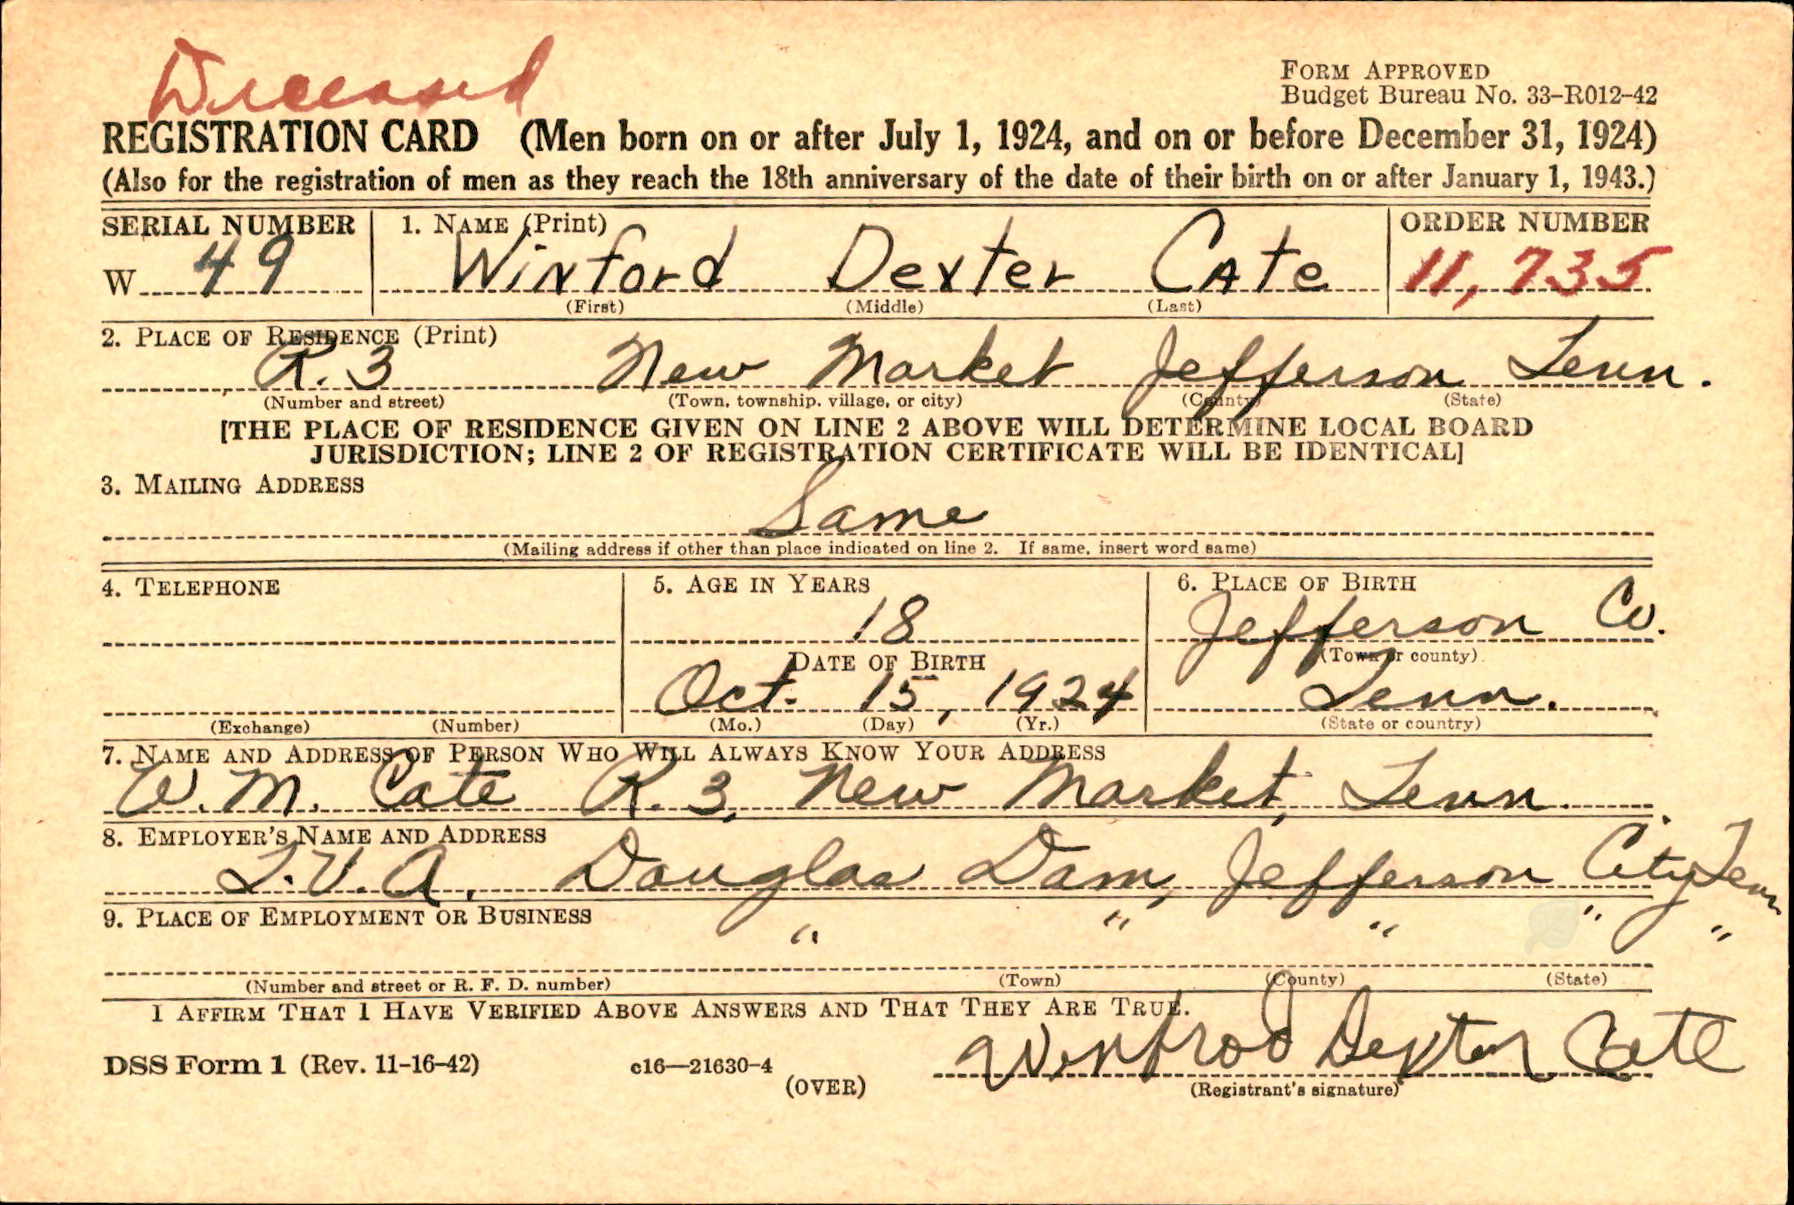 Deceased
FORM APPROVED
Budget Bureau No. 33–R012–42
REGISTRATION CARD (Men born on or after July 1, 1924, and on or before December 31, 1924)
(Also for the registration of men as they reach the 18th anniversary of the date of their birth on or after January 1, 1943.)
SERIAL NUMBER 1. NAME (Print) ORDER NUMBER
W 49 Winford Dexter Cate 11,735
(First) (Middle) (Last)
2. PLACE OF RESIDENCE (Print)
R. 3 New Market Jefferson Tenn.
(Number and street) (Town, township, village, or city) (County) (State)
[THE PLACE OF RESIDENCE GIVEN ON LINE 2 ABOVE WILL DETERMINE LOCAL BOARD
JURISDICTION; LINE 2 OF REGISTRATION CERTIFICATE WILL BE IDENTICAL]
3. MAILING ADDRESS
Same
(Mailing address if other than place indicated on line 2. If same, insert word same)
4. TELEPHONE 5. AGE IN YEARS 6. PLACE OF BIRTH
18 Jefferson Co.
DATE OF BIRTH (Town or county)
Oct. 15, 1924 Tenn.
(Exchange) (Number) (Mo.) (Day) (Yr.) (State or country)
7. NAME AND ADDRESS OF PERSON WHO WILL ALWAYS KNOW YOUR ADDRESS
W. M. Cate R. 3, New Market, Tenn.
8. EMPLOYER'S NAME AND ADDRESS
T.V.A. Douglas Dam, Jefferson City Tenn
9. PLACE OF EMPLOYMENT OR BUSINESS
" " " " "
(Number and street or R. F. D. number) (Town) (County) (State)
I AFFIRM THAT I HAVE VERIFIED ABOVE ANSWERS AND THAT THEY ARE TRUE.
DSS Form 1 (Rev. 11–16–42) c16—21630–4 Winfrod Dexter Cate
(OVER) (Registrant's signature)